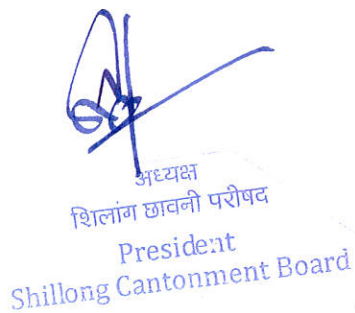 अध्यक्ष
शिलांग छावनी परीषद
President
Shillong Cantonment Board